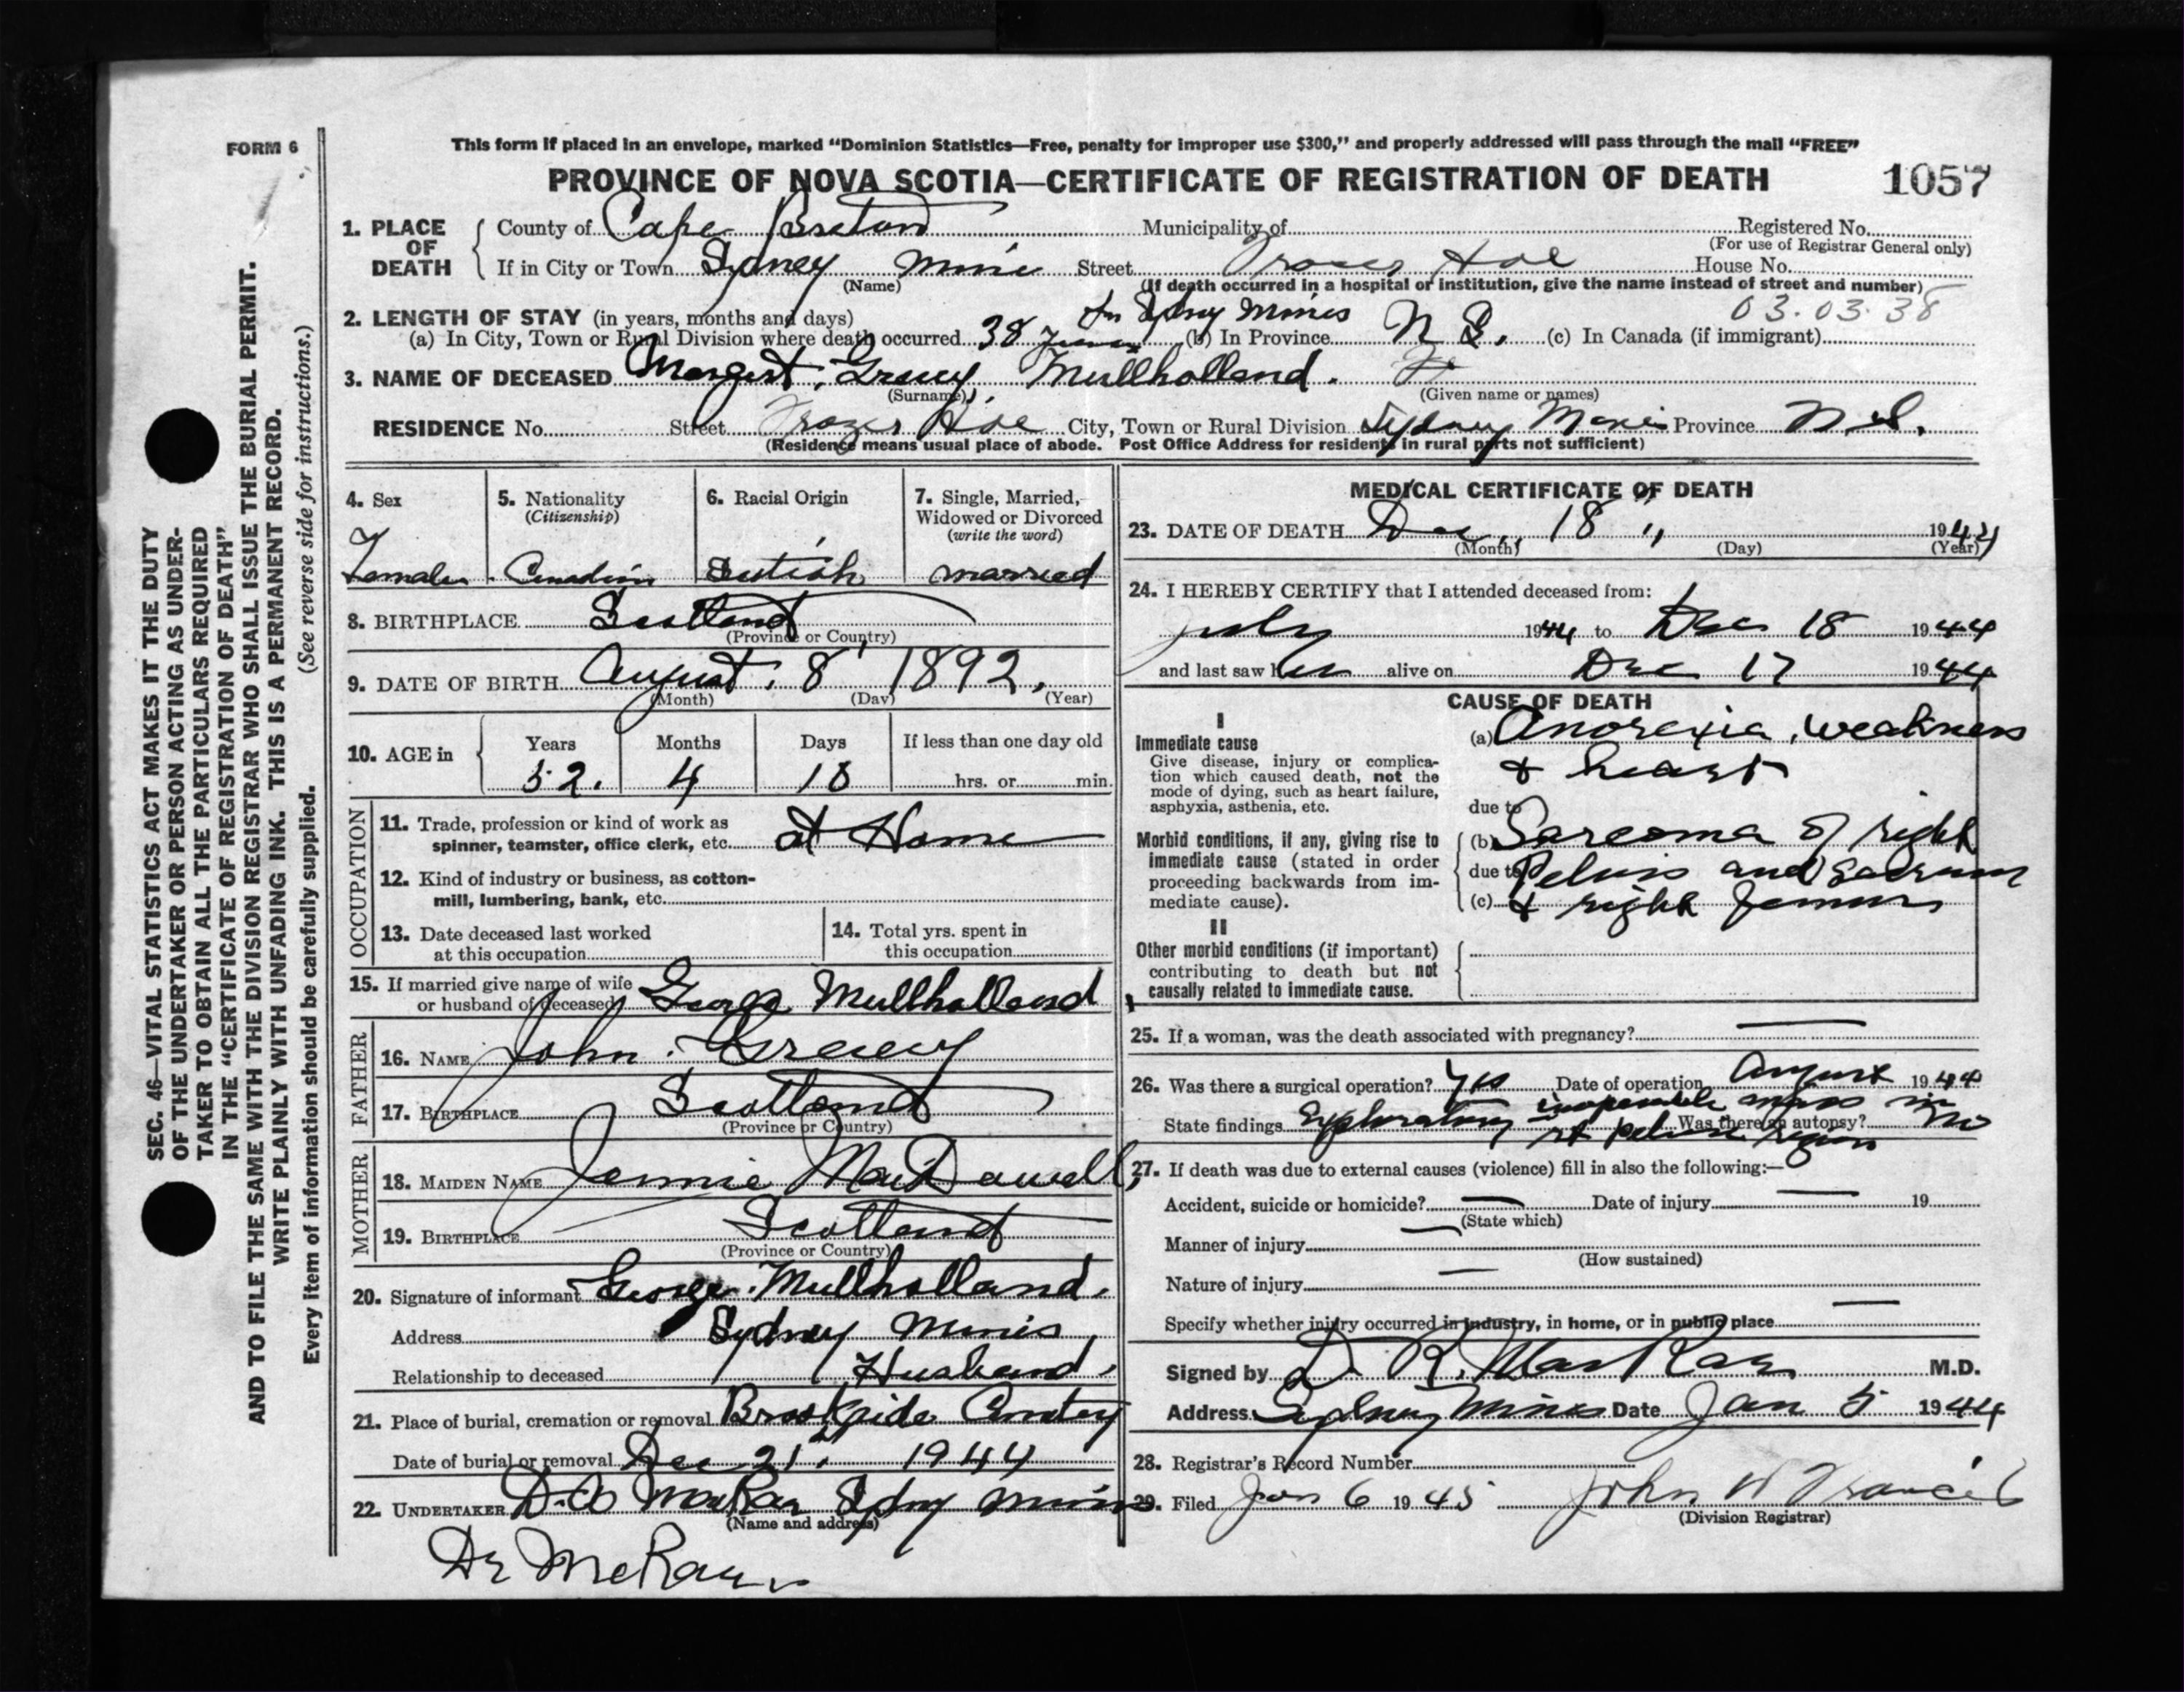 FORM 6
This form if placed in an envelope, marked "Dominion Statistics—Free, penalty for improper use $300," and properly addressed will pass through the mail "FREE"
PROVINCE OF NOVA SCOTIA—CERTIFICATE OF REGISTRATION OF DEATH 1057
1. PLACE OF DEATH
County of Cape Breton Municipality of Registered No.
(For use of Registrar General only)
If in City or Town Sydney Mine Street House No.
(Name) (If death occurred in a hospital or institution, give the name instead of street and number)
2. LENGTH OF STAY (in years, months and days) In Sydney Mines 03.03.38
(a) In City, Town or Rural Division where death occurred 38 years (b) In Province N S. (c) In Canada (if immigrant)
3. NAME OF DECEASED Margert. Mullholland.
(Surname) (Given name or names)
RESIDENCE No. Street City, Town or Rural Division Sydney Mines Province N.S.
(Residence means usual place of abode. Post Office Address for residents in rural parts not sufficient)
4. Sex
Female
5. Nationality
(Citizenship)
Canadian
6. Racial Origin
Scotish
7. Single, Married, Widowed or Divorced
(write the word)
married
8. BIRTHPLACE Scotland
(Province or Country)
9. DATE OF BIRTH August. 8 1892.
(Month) (Day) (Year)
10. AGE in
Years Months Days If less than one day old
52. 4 10 hrs. or min.
OCCUPATION
11. Trade, profession or kind of work as
spinner, teamster, office clerk, etc. at Home
12. Kind of industry or business, as cotton-
mill, lumbering, bank, etc.
13. Date deceased last worked
at this occupation
14. Total yrs. spent in
this occupation
15. If married give name of wife
or husband of deceased George Mullholland
FATHER
16. NAME John
17. BIRTHPLACE Scotland
(Province or Country)
MOTHER
18. MAIDEN NAME Jennie MacDowell,
19. BIRTHPLACE Scotland
(Province or Country)
20. Signature of informant George Mullholland.
Address Sydney Mines,
Relationship to deceased Husband.
21. Place of burial, cremation or removal Brookside
Date of burial or removal Dec 21. 1944
22. UNDERTAKER MacRae Sydney Mines
(Name and address)
Dr McRae
MEDICAL CERTIFICATE OF DEATH
23. DATE OF DEATH Dec, 18 " 1944
(Month) (Day) (Year)
24. I HEREBY CERTIFY that I attended deceased from:
July 1944 to Dec 18 1944
and last saw her alive on Dec 17 1944
CAUSE OF DEATH
I
Immediate cause
Give disease, injury or complica-
tion which caused death, not the
mode of dying, such as heart failure,
asphyxia, asthenia, etc.
(a) Anorexia, weakness
& heart
due to
Morbid conditions, if any, giving rise to
immediate cause (stated in order
proceeding backwards from im-
mediate cause).
(b) Sarcoma of right
due to Pelvis and sacrum
(c) & right femur
II
Other morbid conditions (if important)
contributing to death but not
causally related to immediate cause.
25. If a woman, was the death associated with pregnancy? —
26. Was there a surgical operation? Yes Date of operation August 1944
State findings Exploratory inoperable mass in rt pelvic region Was there an autopsy? No
27. If death was due to external causes (violence) fill in also the following:—
Accident, suicide or homicide? — Date of injury — 19
(State which)
Manner of injury —
(How sustained)
Nature of injury —
Specify whether injury occurred in industry, in home, or in public place —
Signed by D. R. MacRae M.D.
Address Sydney Mines Date Jan 5 1944
28. Registrar's Record Number
29. Filed Jan 6 1945 John
(Division Registrar)
SEC. 46—VITAL STATISTICS ACT MAKES IT THE DUTY
OF THE UNDERTAKER OR PERSON ACTING AS UNDER-
TAKER TO OBTAIN ALL THE PARTICULARS REQUIRED
IN THE "CERTIFICATE OF REGISTRATION OF DEATH"
AND TO FILE THE SAME WITH THE DIVISION REGISTRAR WHO SHALL ISSUE THE BURIAL PERMIT.
WRITE PLAINLY WITH UNFADING INK. THIS IS A PERMANENT RECORD.
Every item of information should be carefully supplied. (See reverse side for instructions.)